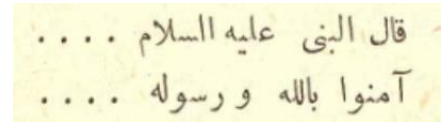 قال البنى عليه السلام ....
آمنوا بالله و رسوله ....